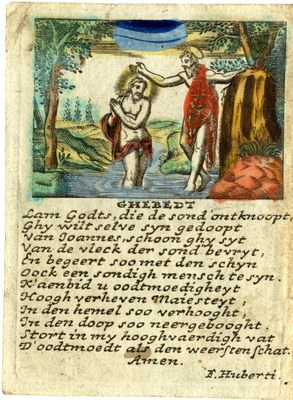 GHEBEDT
Lam Godts, die de sond'ontknoopt,
Ghy wilt selve syn gedoopt
Van Ioannes, schoon ghy syt
Van de vleck der sond bevryt,
En begeert soo met den schyn
Oock een sondigh mensch te syn.
K'aenbid u oodtmoedigheyt
Hoogh verheven Maiesteyt,
In den hemel soo verhooght,
In den doop soo neergebooght.
Stort in my hooghvaerdigh vat
D'oodtmoedt als den weersten schat.
Amen.
F. Huberti.